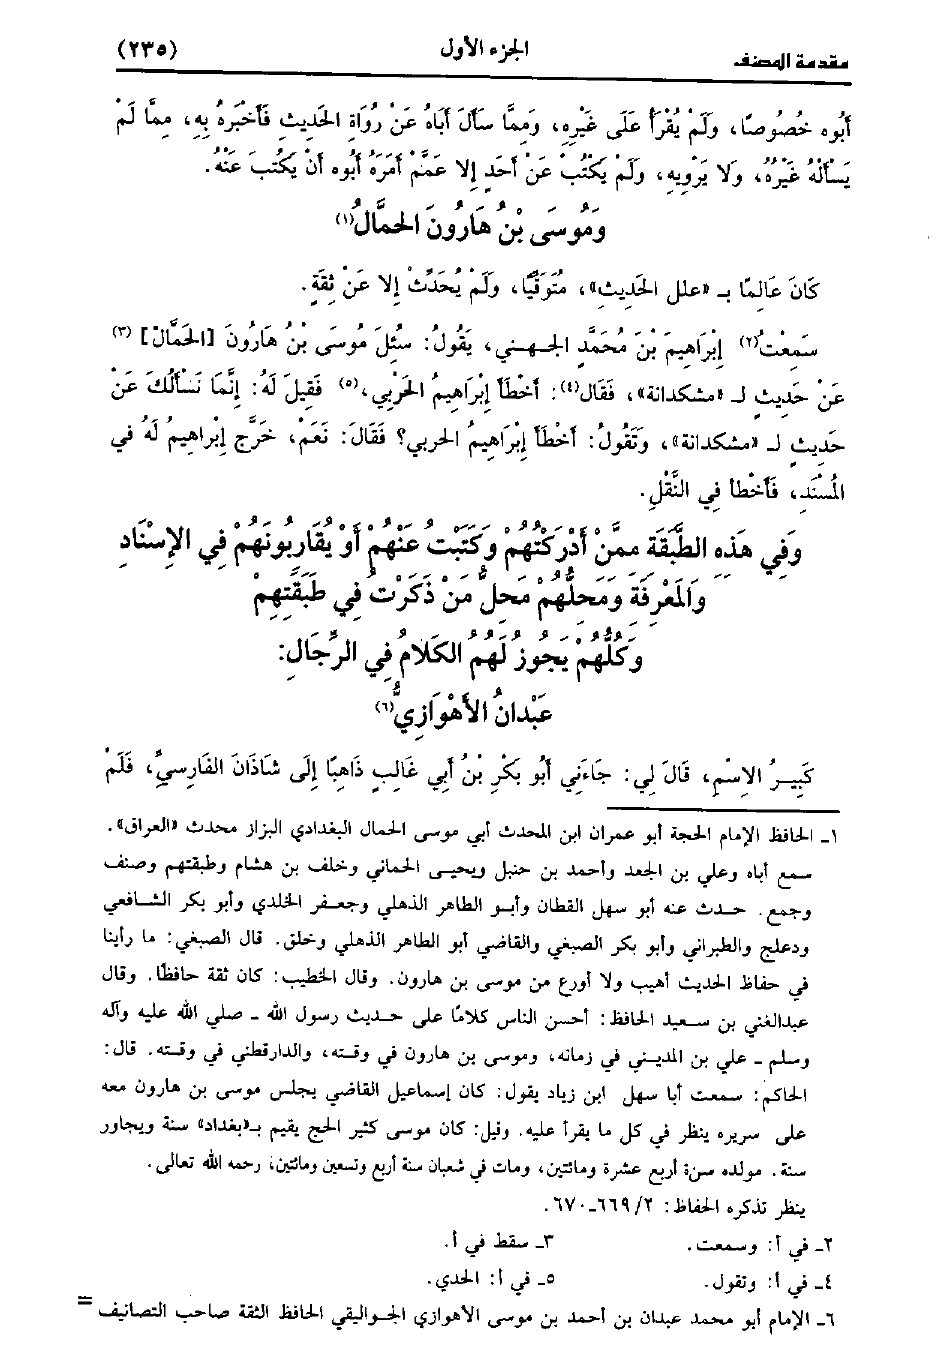 مقدمة المصنف الجزء الأول (٢٣٥)
أَبُوه خُصُوصًا، وَلَمْ يُقْرَأْ عَلَى غَيْرِهِ، وَمِمَّا سَأَلَ أَبَاهُ عَنْ رُوَاةِ الحَدِيثِ فَأَخْبَرَهُ بِهِ، مِمَّا لَمْ
يَسْأَلْهُ غَيْرُهُ، وَلا يَرْوِيهِ، وَلَمْ يَكْتُبْ عَنْ أَحَدٍ إلا عَمَّمْ أَمَرَهُ أَبُوه أَنْ يَكْتُبَ عَنْهُ.
وَمُوسَى بْنُ هَارُونَ الحَمَّالُ(١)
كَانَ عَالِمًا بـ «علل الحَدِيثِ»، مُتَوَقِّيًا، وَلَمْ يُحَدِّثْ إلا عَنْ ثِقَةٍ.
سَمِعْتُ(٢) إِبْرَاهِيمَ بْنَ مُحَمَّدٍ الجـهـني، يَقُولُ: سئُلَ مُوسَى بْنُ هَارُونَ [الحَمَّالُ] (٣)
عَنْ حَدِيثٍ لـ «مشكدانة»، فَقَال(٤): أَخْطَأَ إِبْرَاهِيمُ الحَرْبِي،(٥) فَقِيلَ لَهُ: إِنَّمَا نَسْأَلُكَ عَنْ
حَدِيثٍ لـ «مشكدانة»، وَتَقُولُ: أَخْطَأَ إِبْرَاهِيمُ الحربي؟ فَقَالَ: نَعَمْ، خَرَّج إِبْراهِيمُ لَهُ في
المُسْنَدِ، فَأَخْطأ فِي النَّقْلِ.
وَفِي هَذِهِ الطَّبَقَةِ مِمَّنْ أَدْرَكْتُهُمْ وَكَتَبْتُ عَنْهُمْ أَوْ يُقَارِبُونَهُمْ فِي الإِسْنَادِ
وَالمَعْرِفَةِ وَمَحَلُّهُمْ مَحَلُّ مَنْ ذَكَرْتُ فِي طَبَقَتِهِمْ
وَكُلُّهُمْ يَجُوزُ لَهُمُ الكَلامُ فِي الرِّجَالِ:
عَبْدانُ الأَهْوَازِيُّ(٦)
كَبِيرُ الإِسْمِ، قَالَ لِي: جَاءَنِي أَبُو بَكْرِ بْنُ أَبِي غَالِبٍ ذَاهِبًا إِلَى شَاذَانَ الفَارِسِيِّ، فَلَمْ
١ـ الحافظ الإمام الحجة أبو عمران ابن المحدث أبي موسى الحمال البغدادي البزاز محدث «العراق».
سمع أباه وعلي بن الجعد وأحمد بن حنبل ويحيى الحماني وخلف بن هشام وطبقتهم وصنف
وجمع. حدث عنه أبو سهل القطان وأبو الطاهر الذهلي وجعفر الخلدي وأبو بكر الشافعي
ودعلج والطبراني وأبو بكر الصبغي والقاضي أبو الطاهر الذهلي وخلق. قال الصبغي: ما رأينا
في حفاظ الحديث أهيب ولا أورع من موسى بن هارون. وقال الخطيب: كان ثقة حافظًا. وقال
عبدالغني بن سعيد الحافظ: أحسن الناس كلامًا على حديث رسول الله ـ صلي الله عليه وآله
وسلم ـ علي بن المديني في زمانه، وموسى بن هارون في وقته، والدارقطني في وقته. قال:
الحاكم: سمعت أبا سهل ابن زياد يقول: كان إسماعيل القاضي يجلس موسى بن هارون معه
على سريره ينظر في كل ما يقرأ عليه. وقيل: كان موسى كثير الحج يقيم بـ«بغداد» سنة ويجاور
سنة. مولده سنة أربع عشرة ومائتين، ومات في شعبان سنة أربع وتسعين ومائتين، رحمه الله تعالى.
ينظر تذكره الحفاظ: ٢/ ٦٦٩ـ٦٧٠.
٢ـ في أ: وسمعت. ٣ـ سقط في أ.
٤ـ في أ: وتقول. ٥ـ في أ: الحدي.
٦ـ الإمام أبو محمد عبدان بن أحمد بن موسى الأهوازي الجواليقي الحافظ الثقة صاحب التصانيف =